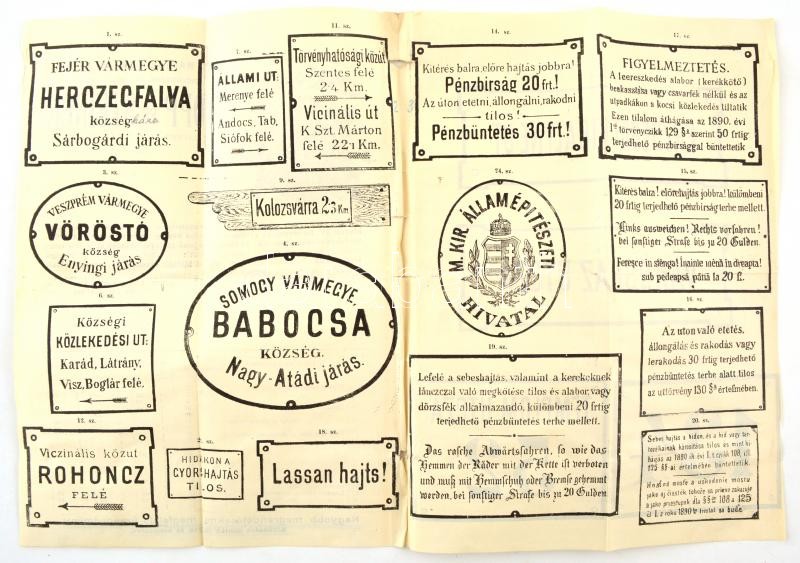 1. sz.
FEJÉR VÁRMEGYE
HERCZEGFALVA
község
Sárbogárdi járás.
3. sz.
VESZPRÉM VÁRMEGYE
VÖRÖSTÓ
község
Enyingi járás
6. sz.
Községi
KÖZLEKEDÉSI UT:
Karád, Látrány,
Visz, Boglár felé.
12. sz.
Viczinális közut
ROHONCZ
FELÉ
7. sz.
ÁLLAMI UT:
Merenye felé
Andocs, Tab,
Siófok felé.
11. sz.
Törvényhatósági közút
Szentes felé
24 Km.
Vicinális út
K Szt. Márton
felé 22·1 Km.
9. sz.
Kolozsvárra 2·3 Km
4. sz.
SOMOGY VÁRMEGYE.
BABOCSA
KÖZSÉG.
Nagy-Atádi járás.
2. sz.
HIDAKON A
GYORSHAJTÁS
TILOS.
18. sz.
Lassan hajts!
14. sz.
Kitérés balra, előre hajtás jobbra!
Pénzbírság 20 frt.!
Az úton etetni, állongálni, rakodni
tilos!
Pénzbüntetés 30 frt.!
24. sz.
M. KIR. ÁLLAMÉPITÉSZETI
HIVATAL
19. sz.
Lefelé a sebeshajtás, valamint a kerekeknek
lánczczal való megkötése tilos és alabor, vagy
dörzsfék alkalmazandó, különbeni 20 frtig
terjedhető pénzbüntetés terhe mellett.
Das rasche Abwärtsfahren, so wie das
Hemmen der Räder mit der Kette ist verboten
und muß mit Hemmschuh oder Bremse gehemmt
werden, bei sonstiger Strafe bis zu 20 Gulden.
17. sz.
FIGYELMEZTETÉS.
A leereszkedés alabor (kerékkötő)
beakasztása vagy csavarfék nélkül és az
utpadkákon a kocsi közlekedés tiltatik
Ezen tilalom áthágása az 1890. évi
I ső törvényczikk 129 §a szerint 50 frtig
terjedhető pénzbirsággal büntettetik
15. sz.
Kitérés balra! előrehajtás jobbra! különbeni
20 frtig terjedhető pénzbirság terhe mellett.
Links ausweichen! Rechts vorfahren!
bei sonstiger Strafe bis zu 20 Gulden.
Feresce in stênga! Înainte mênă in dreapta!
sub pedeapsă pănă la 20 fl.
16. sz.
Az uton való etetés,
állongálás és rakodás vagy
lerakodás 30 frtig terjedhető
pénzbüntetés terhe alatt tilos
az uttörvény 130 §a értelmében.
20. sz.
Sebes hajtás a hidon, és a hid vagy tar-
tozékainak károsítása tilos és mint ki-
hágás az 1890 ik évi I. t. czikk 108. ill.
125 §§-ai értelmében büntettetik.